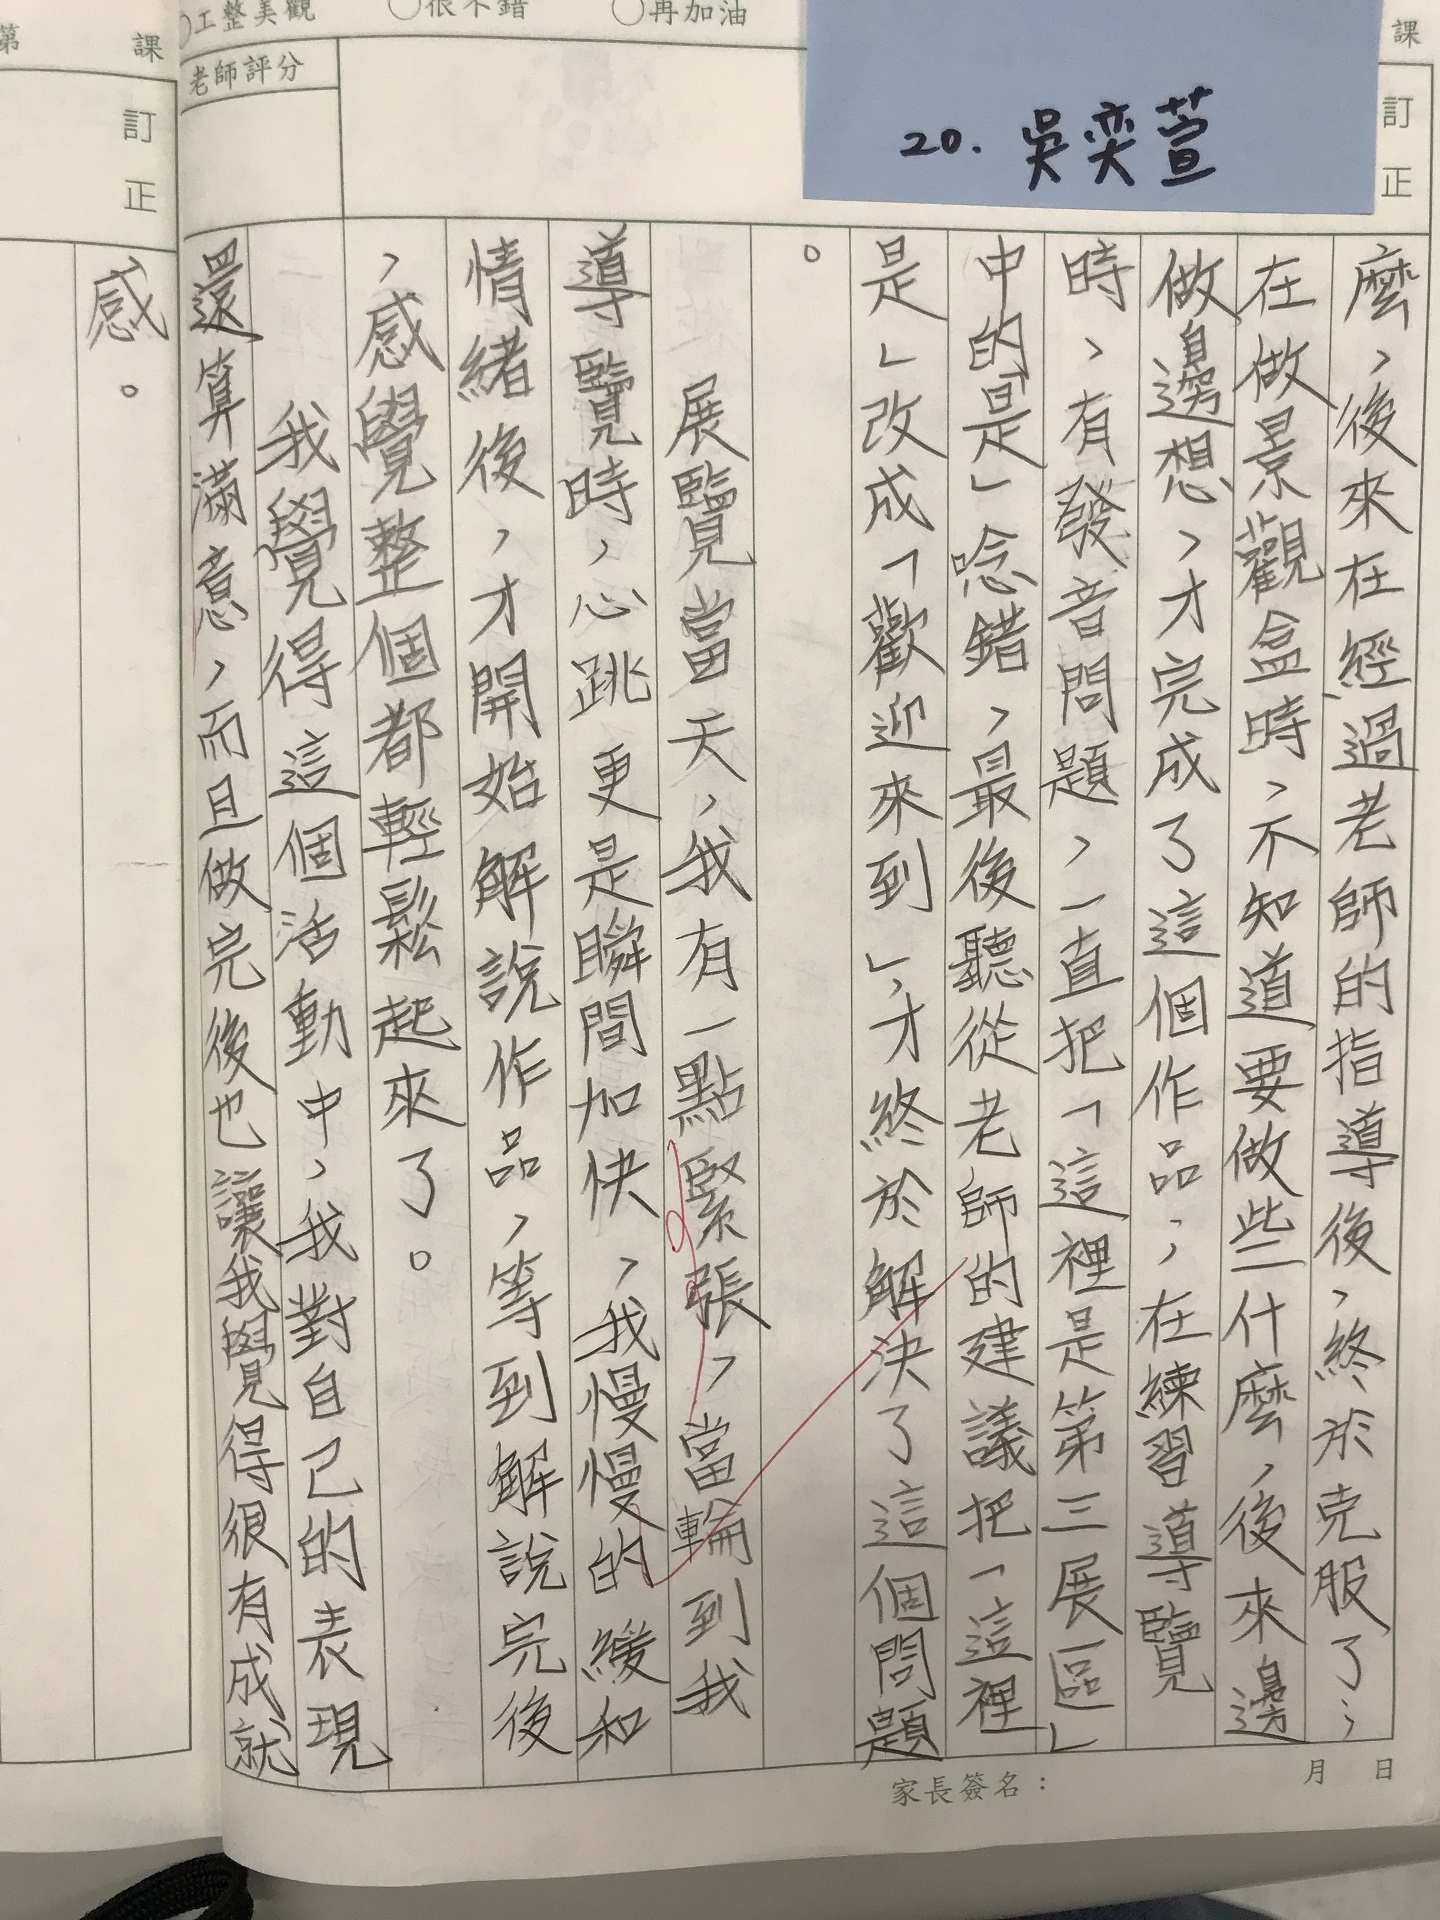 ○工整美觀 ○很不錯 ○再加油
課
老師評分
訂正
20. 吳奕萱
麼，後來在經過老師的指導後，終於克服了；
在做景觀盒時，不知道要做些什麼，後來邊
做邊想，才完成了這個作品；在練習導覽
時，有發音問題，一直把「這裡是第三展區」
中的「是」唸錯，最後聽從老師的建議把「這裡
是」改成「歡迎來到」，才終於解決了這個問題
。
展覽當天，我有一點緊張，當輪到我
導覽時，心跳更是瞬間加快，我慢慢的緩和
情緒後，才開始解說作品，等到解說完後
，感覺整個都輕鬆起來了。
我覺得這個活動中，我對自己的表現
還算滿意，而且做完後也讓我覺得很有成就
家長簽名：
月 日
第 課
訂正
感。